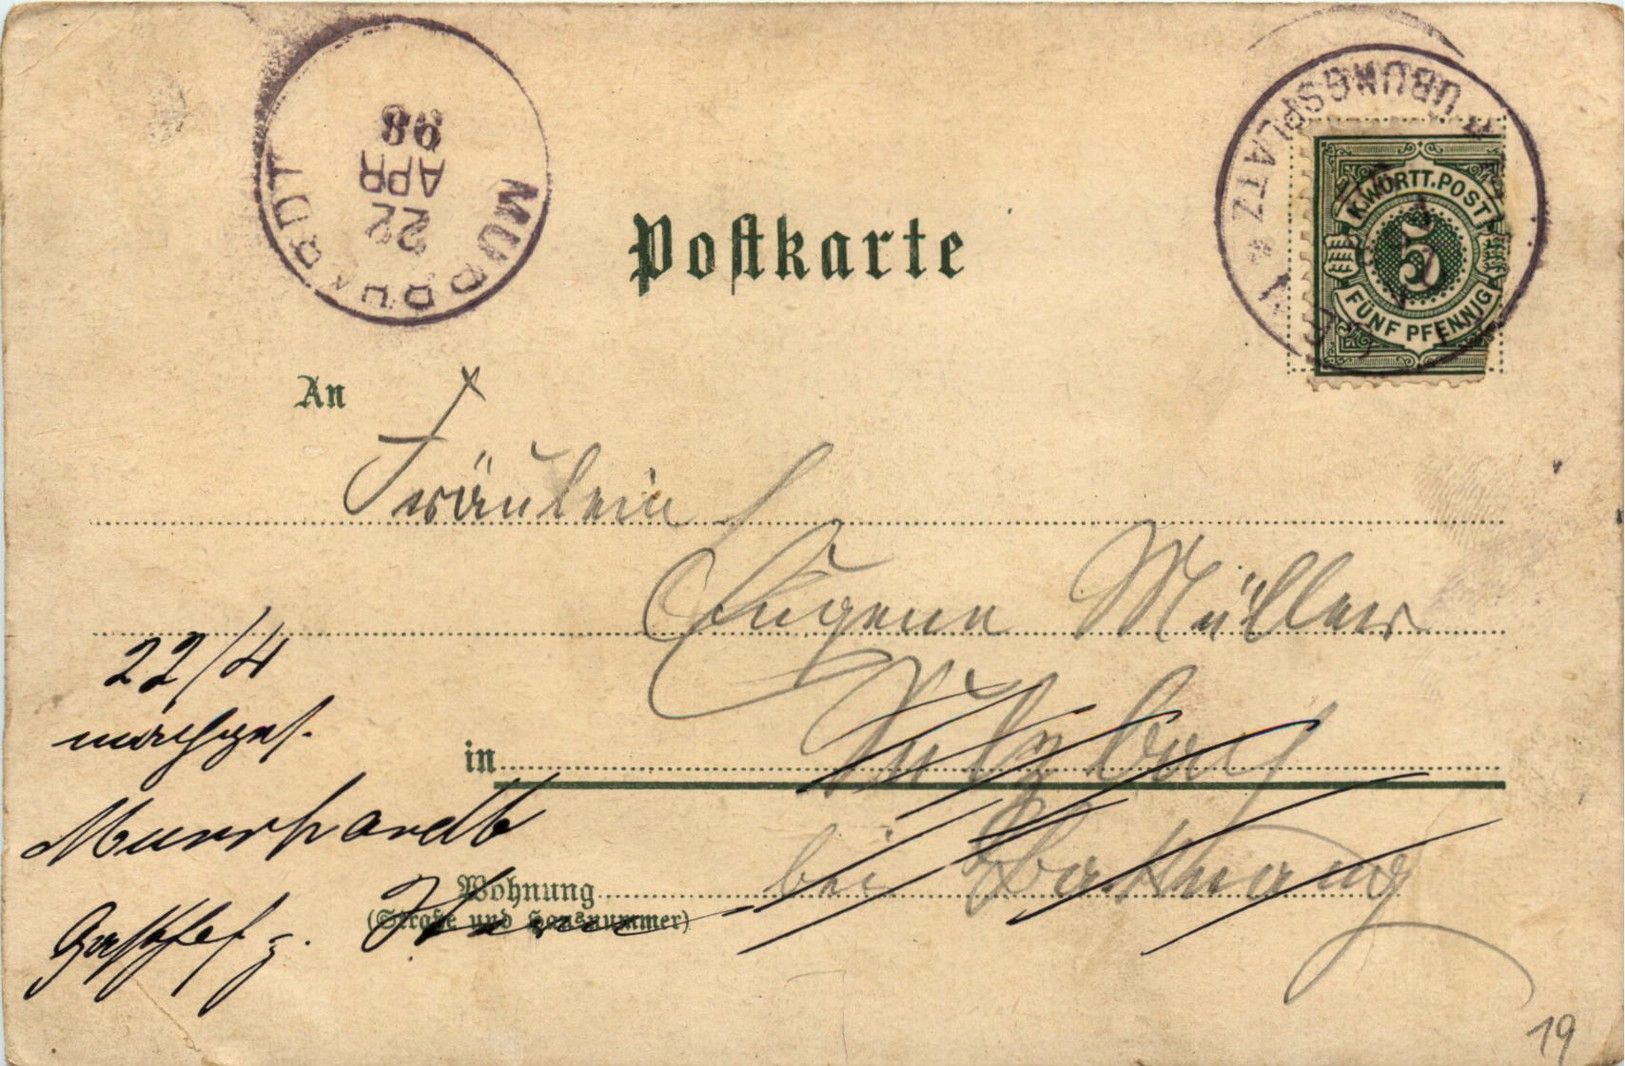 MURRHARDT
22
APR
98
ÜBUNGSPLATZ *
K.WÜRTT.POST
5
FÜNF PFENNIG
Postkarte
An
Fräulein
Eugene Müller
in Sulzbach
bei Backnang
22/4
nachges.
Murrhardt
Gasthof z.
Wohnung
(Straße und Hausnummer)
19